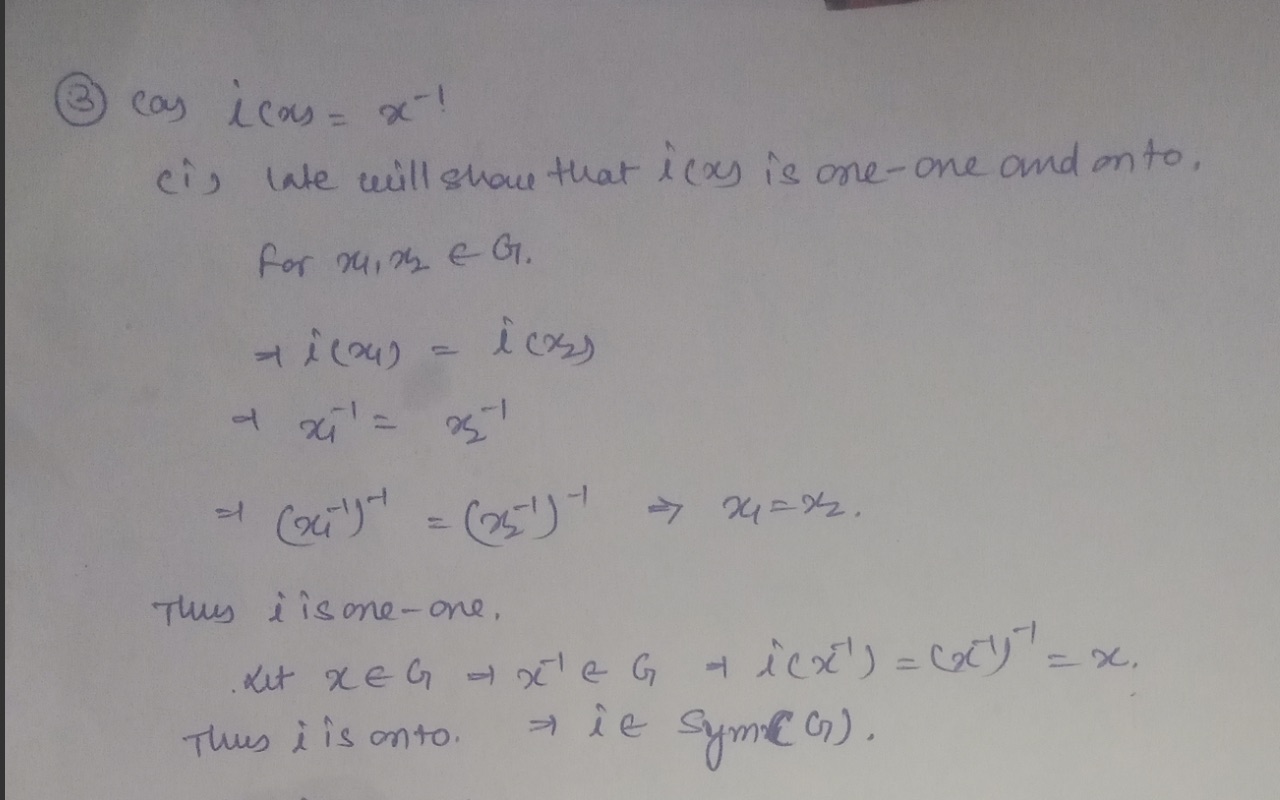 ③ (a) i(x) = x⁻¹
(i) We will show that i(x) is one-one and onto.
for x₁, x₂ ∈ G.
⇒ i(x₁) = i(x₂)
⇒ x₁⁻¹ = x₂⁻¹
⇒ (x₁⁻¹)⁻¹ = (x₂⁻¹)⁻¹ ⇒ x₁ = x₂.
Thus i is one-one.
Let x ∈ G ⇒ x⁻¹ ∈ G ⇒ i(x⁻¹) = (x⁻¹)⁻¹ = x.
Thus i is onto. ⇒ i ∈ Sym(G).